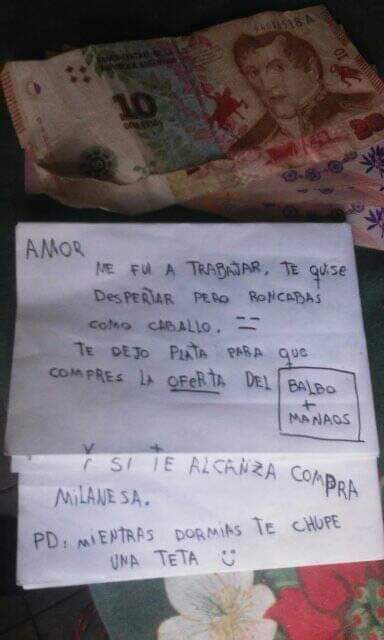 10
AMOR
ME FUI A TRABAJAR. TE QUISE
DESPERTAR PERO RONCABAS
COMO CABALLO. =
TE DEJO PLATA PARA QUE
COMPRES LA OFERTA DEL BALBO
+
MANAOS
Y SI TE ALCANZA COMPRA
MILANESA.
PD: MIENTRAS DORMIAS TE CHUPE
UNA TETA :)